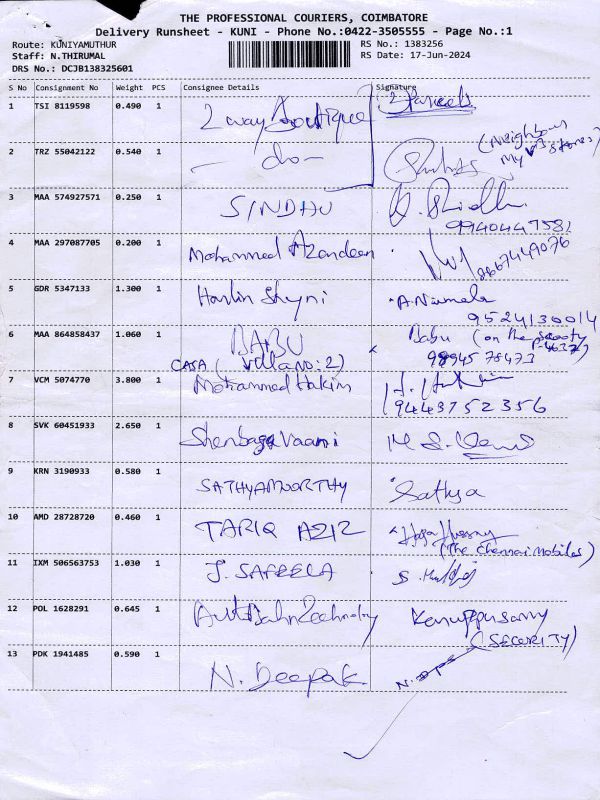 THE PROFESSIONAL COURIERS, COIMBATORE
Delivery Runsheet - KUNI - Phone No.:0422-3505555 - Page No.:1
Route: KUNIYAMUTHUR
Staff: N.THIRUMAL
DRS No.: DCJB138325601
RS No.: 1383256
RS Date: 17-Jun-2024
S No Consignment No Weight PCS Consignee Details Signature
1 TSI 8119598 0.490 1 2 way Boutique 2 Parcels
2 TRZ 55042122 0.540 1 - do - (Neighbour
My stores)
3 MAA 574927571 0.250 1 SINDHU
9940447581
4 MAA 297087705 0.200 1 Mohammed Azardeen
8667449076
5 GDR 5347133 1.300 1 Harlin Shyni A. Nirmala
9524130014
6 MAA 864858437 1.060 1 BABU Babu (on the
CASA (Villa no: 2) 9894578473
7 VCM 5074770 3.800 1 Mohammed Hakim
9443752356
8 SVK 60451933 2.650 1 Shenbaga Vaani
9 KRN 3190933 0.580 1 SATHYAMOORTHY Sathya
10 AMD 28728720 0.460 1 TARIQ AZIZ
(The Chennai Mobiles)
11 IXM 506563753 1.030 1 J. SAFEELA
12 POL 1628291 0.645 1 Autobahn Technology Karuppusamy
(SECURITY)
13 PDK 1941485 0.590 1 N. Deepak